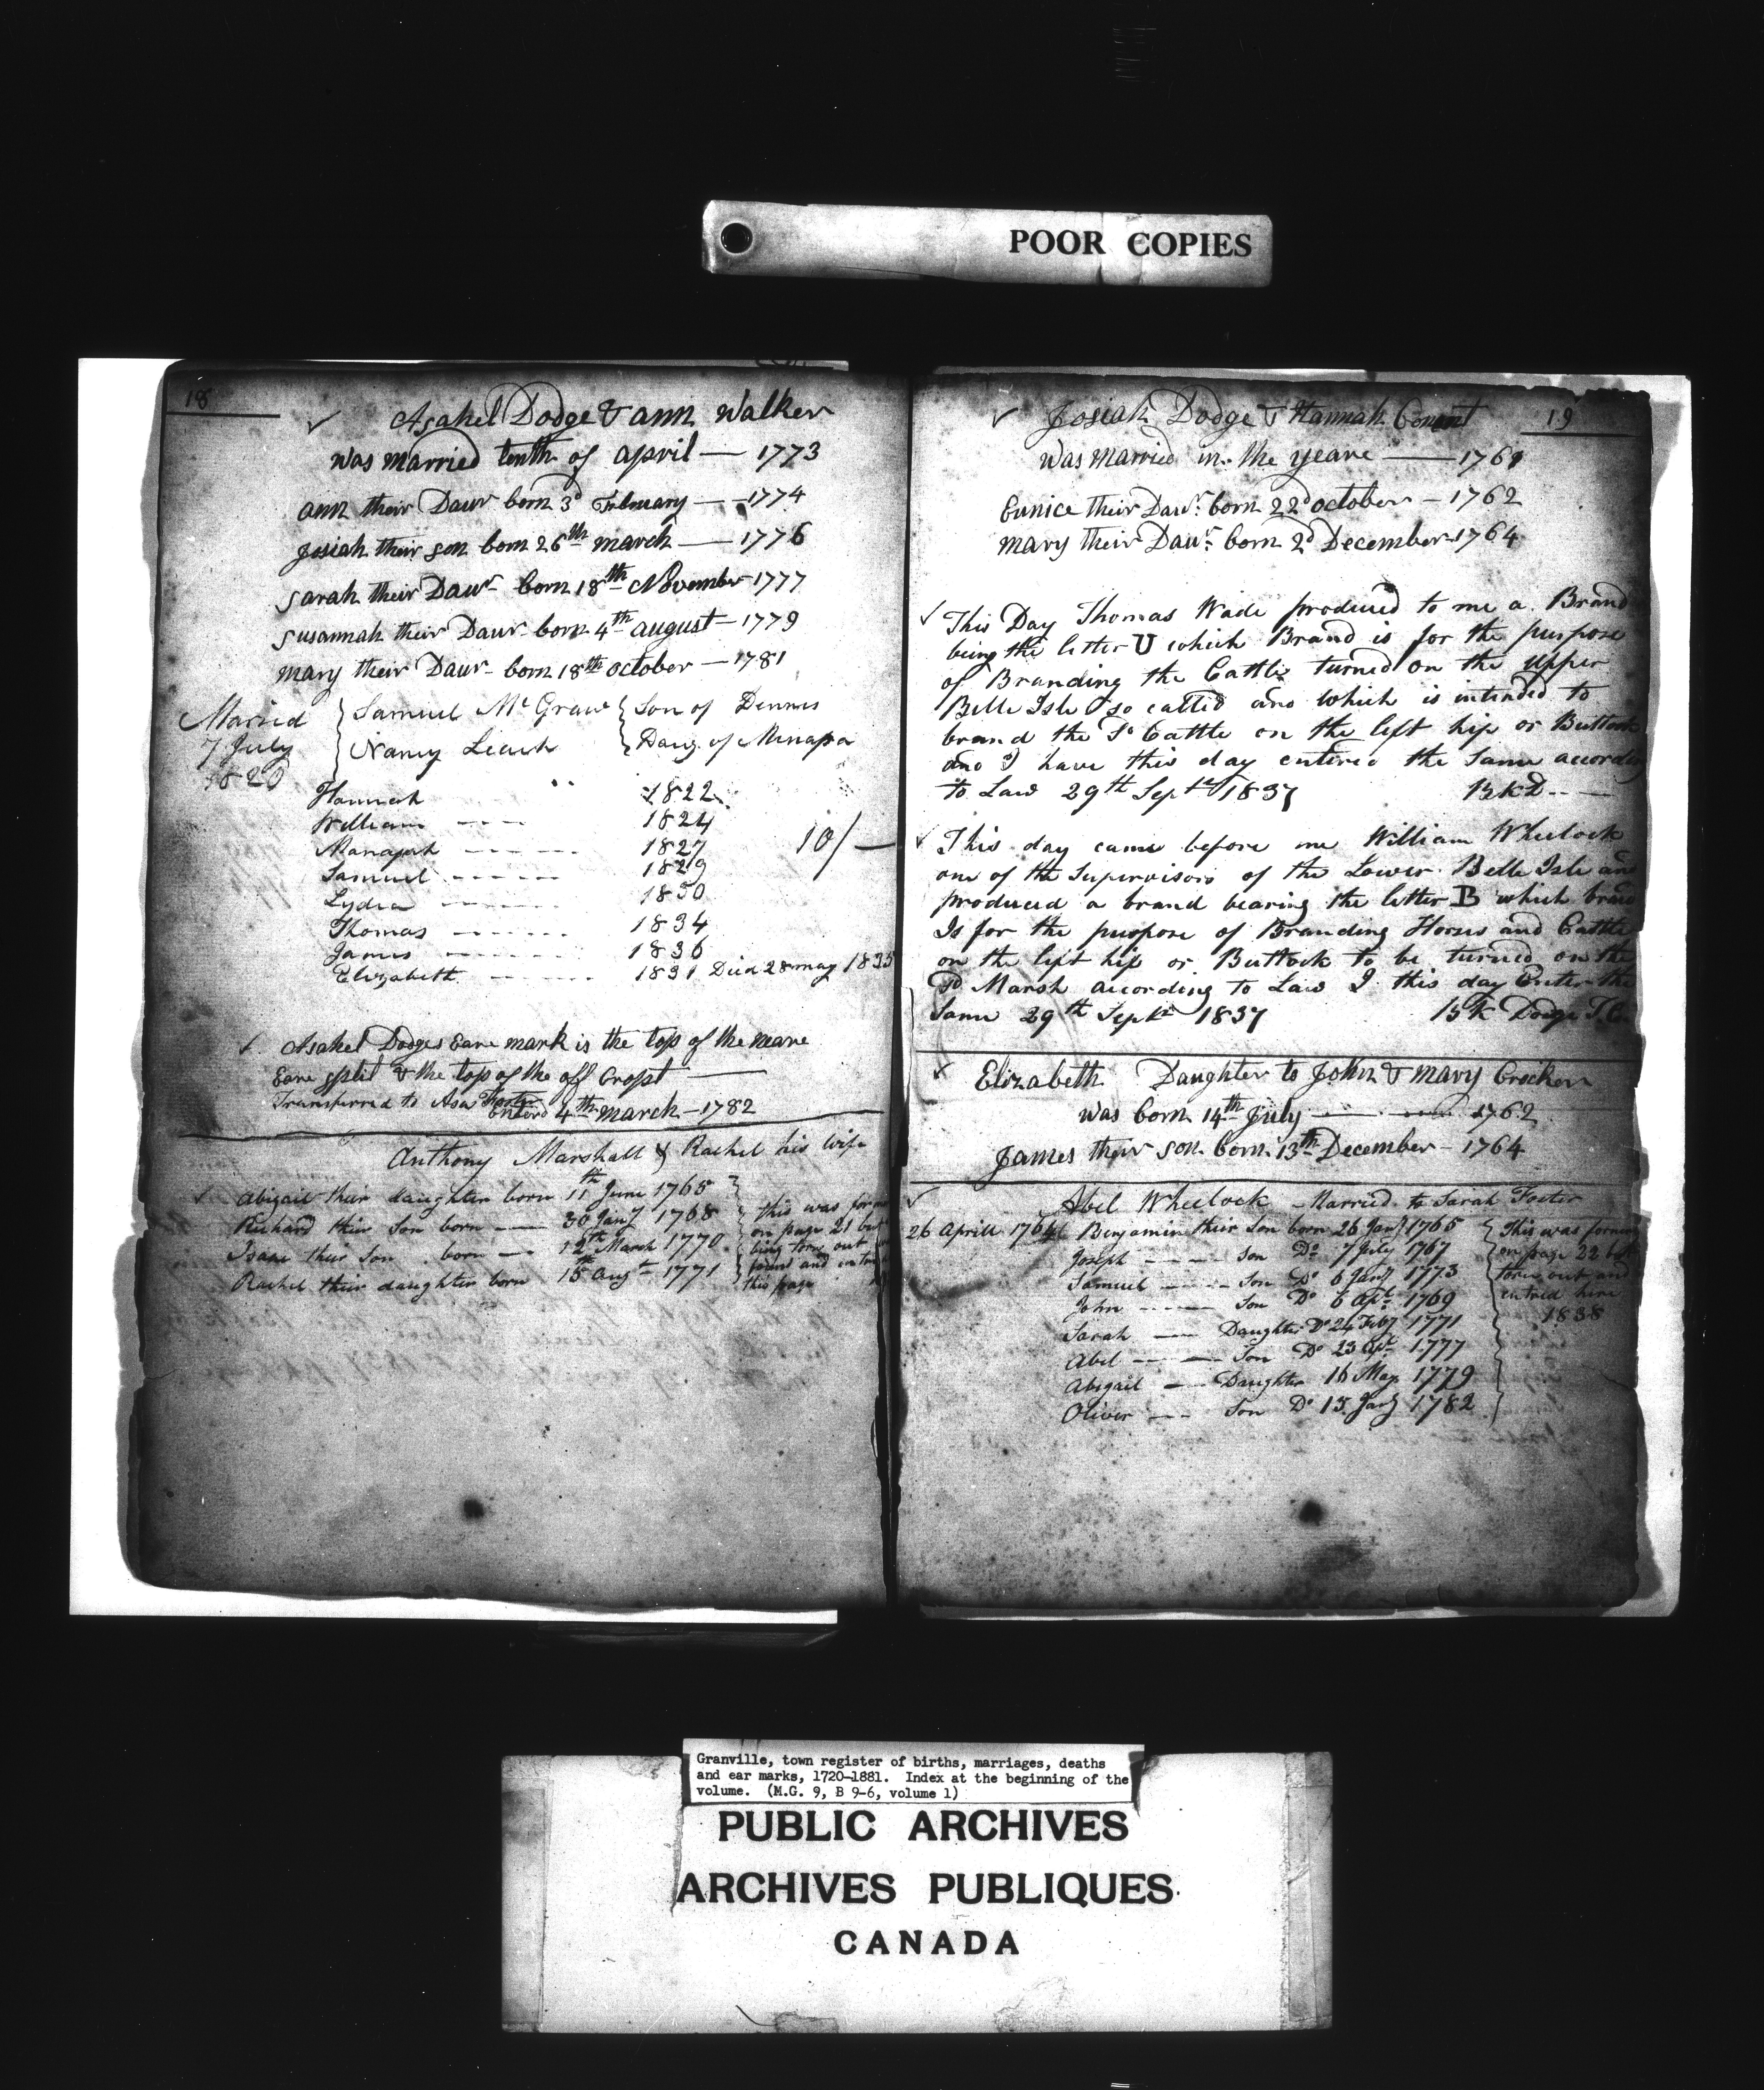 POOR COPIES
18
✓ Asahel Dodge & ann Walker
was married tenth of april — 1773
ann their Daur born 3d February — 1774
Josiah their son born 26th march — 1776
Sarah their Daur born 18th November 1777
Susannah their Daur born 4th august — 1779
mary their Daur born 18th october — 1781
Maried } Samuel McGraw { Son of Dennis
7 July } Nancy Leach { Daug. of
1820
Hannah 1822
William 1824
1827 10/—
Samuel 1829
Lydia 1830
Thomas 1834
James 1836
Elizabeth 1831 Died 28 may 1835
✓ Asahel Dodges Eare mark is the top of the neare
Eare split & the top of the off Cropt —
Transferred to Asa
Enterd 4th march — 1782
Anthony Marshall & Rachel his wife
✓ Abigail their daughter born 11th June 1765 } this was
Richard their Son born — 30 Jany 1768 on page 21 but
Isaac their Son born — 12th March 1770 being torn out
Rachel their daughter born 15th Augt 1771 found and
this page
19
✓ Josiah Dodge & Hannah Conant
was married in the yeare — 1761
Eunice their Daur. born 22d october — 1762
mary their Daur. born 2d December 1764
✓ This Day Thomas Wade produced to me a Brand
being the letter U which Brand is for the purpose
of Branding the Cattle turned on the upper
Belle Isle so called and which is intended to
brand the Sd Cattle on the left hip or Buttock
and I have this day entered the Same according
to Law 29th Septr 1837 BKD
✓ This day came before me William Wheelock
one of the Supervisors of the Lower Belle Isle and
produced a brand bearing the letter B which brand
Is for the purpose of Branding Horses and Cattle
on the left hip or Buttock to be turned on the
Sd Marsh according to Law I this day Enter the
Same 29th Septr 1837 BK Dodge T.C.
✓ Elizabeth Daughter to John & mary Crocker
was born 14th July 1762
James their son born 13th December — 1764
✓ Abel Wheelock – Married to Sarah Foster
26 Aprill 1764 Benjamin their Son born 26 Jany 1765 { This was
Joseph — Son Do 7 July 1767 on page 22 but
Samuel — Son Do 6 Jany 1773 torn out and
John — Son Do 6 Apl 1769 entred here
Sarah — Daughter Do 24 Feby 1771 1838
Abel — Son Do 23 Apl 1777
Abigail — Daughter 16 May 1779
Oliver — Son Do 15 Jany 1782
Granville, town register of births, marriages, deaths
and ear marks, 1720-1881. Index at the beginning of the
volume. (M.G. 9, B 9-6, volume 1)
PUBLIC ARCHIVES
ARCHIVES PUBLIQUES
CANADA